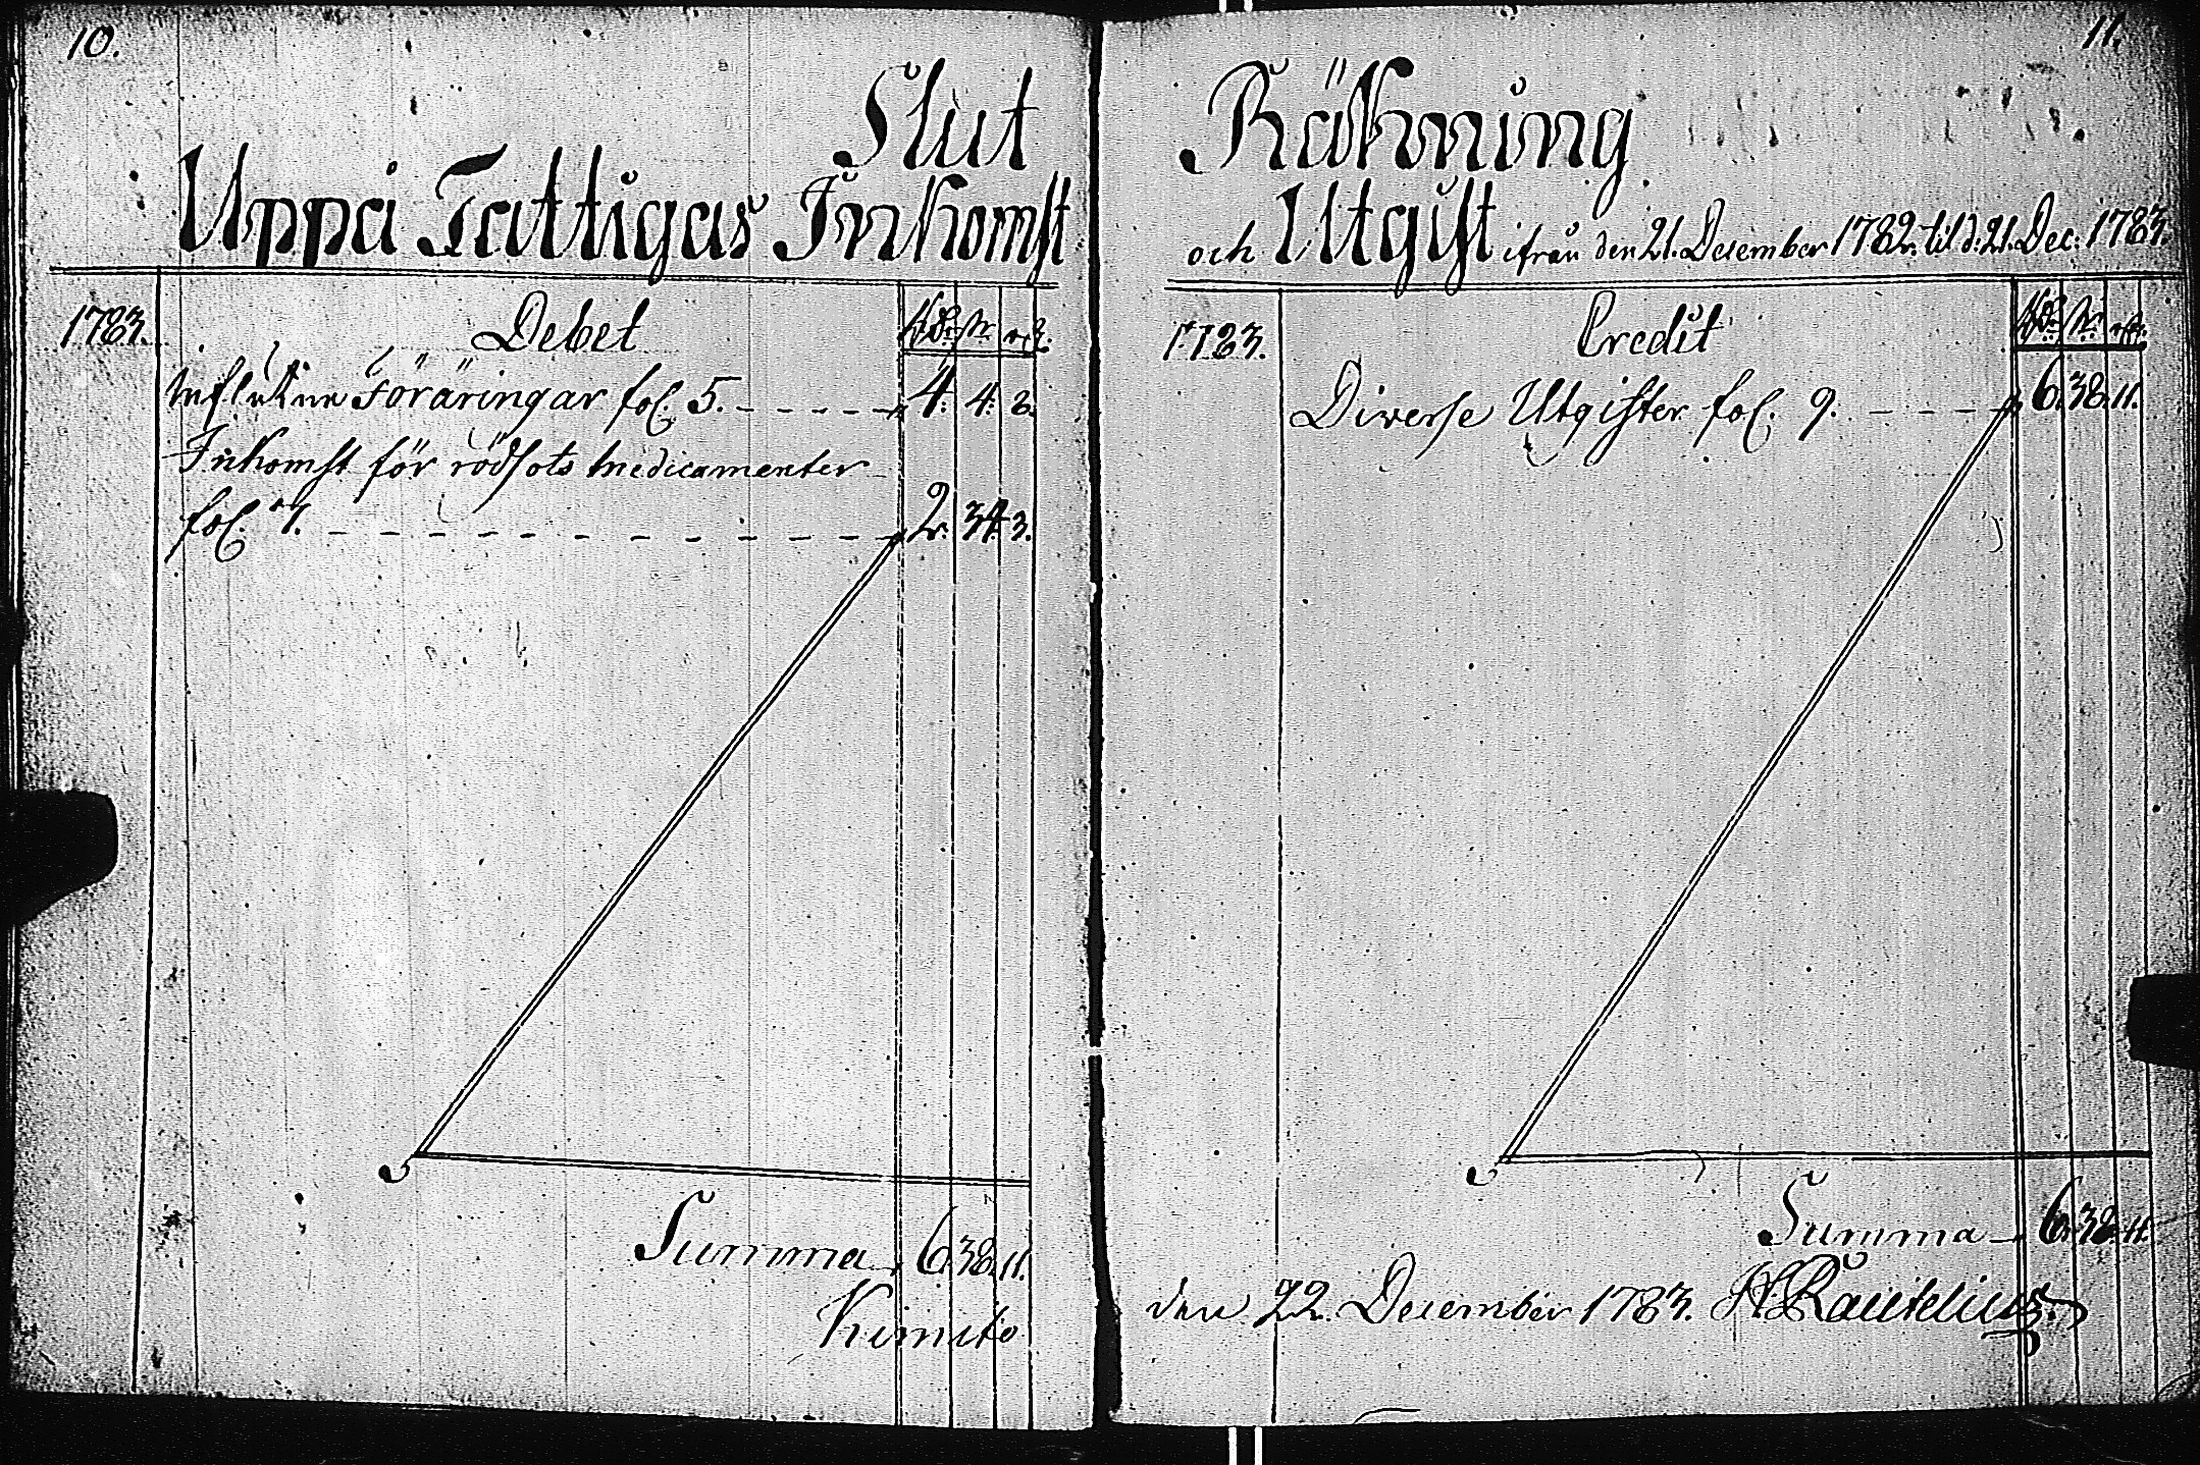 10.
Slut
Uppå Fattigas Inkomst
1783. Debet Rdr sk. rst.
Influtne Föräringar fol. 5. 4. 4. 8.
Inkomst för rödsots medicamenter
fol. 7. 2. 34. 3.
Summa 6. 38. 11.
Kimito
11.
Räkning
och Utgift ifrån den 21. December 1782. til d: 21. Dec: 1783.
1783. Credit Rdr sk. rst.
Diverse Utgifter fol. 9. 6. 38. 11.
Summa 6. 38. 11.
den 22. December 1783. Rautelius